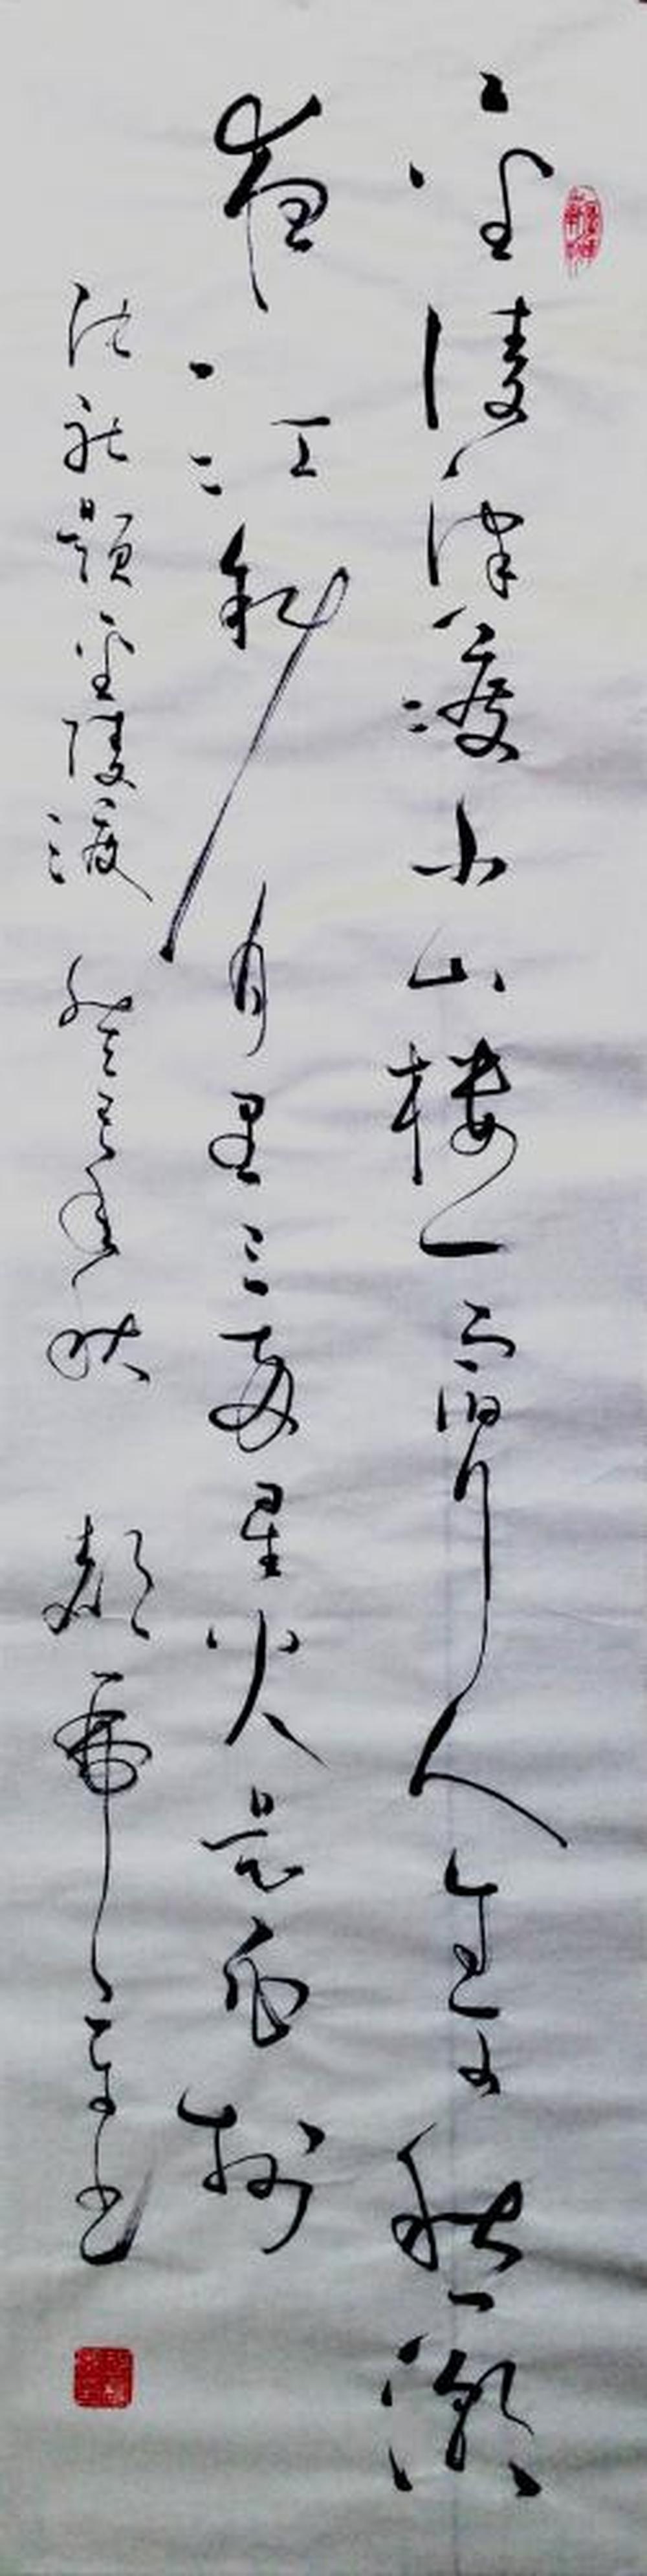 金陵津渡小山楼一宿行人自可愁潮
落江斜月里三两星火是瓜州
张祜题金陵渡 癸卯年秋 颜
书